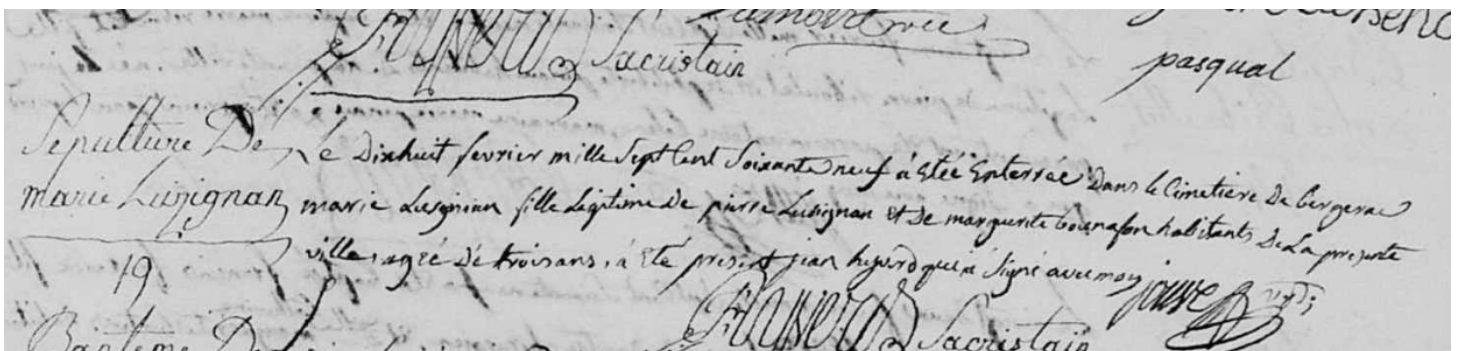 Sacristain
pasqual
Sepulture De
marie Lusignan
19
Le Dixhuit fevrier mille Sept Cent Soixante neuf à Etée Enterrée Dans le Cimetière De Bergerac
marie Lusignian fille Légitime De pierre Lusignan et De marguerite habitants De La presente
ville, agée De trois ans, à été présent jean qui à Signé avec moy
Sacristain
Bapteme De